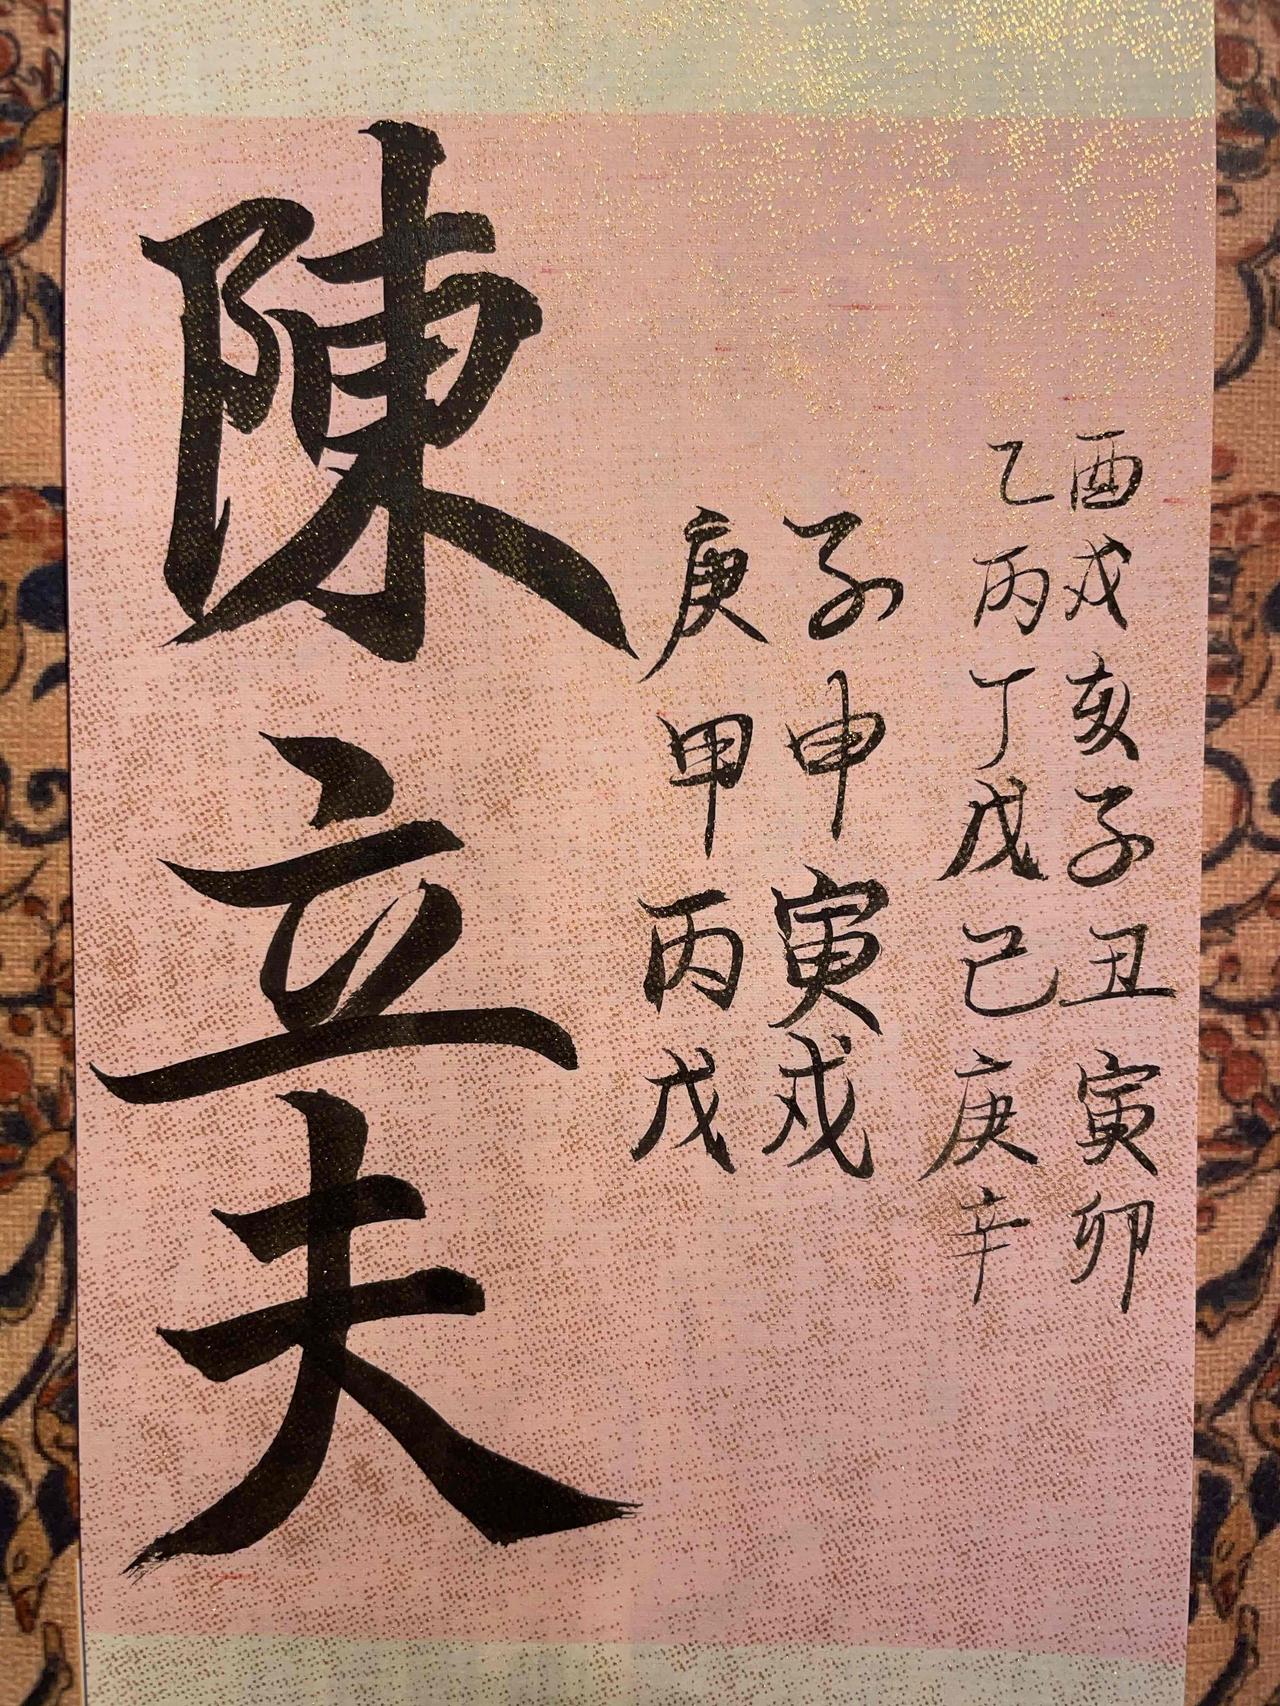 酉戌亥子丑寅卯
乙丙丁戊己庚辛
子申寅戌
庚甲丙戊
陳立夫